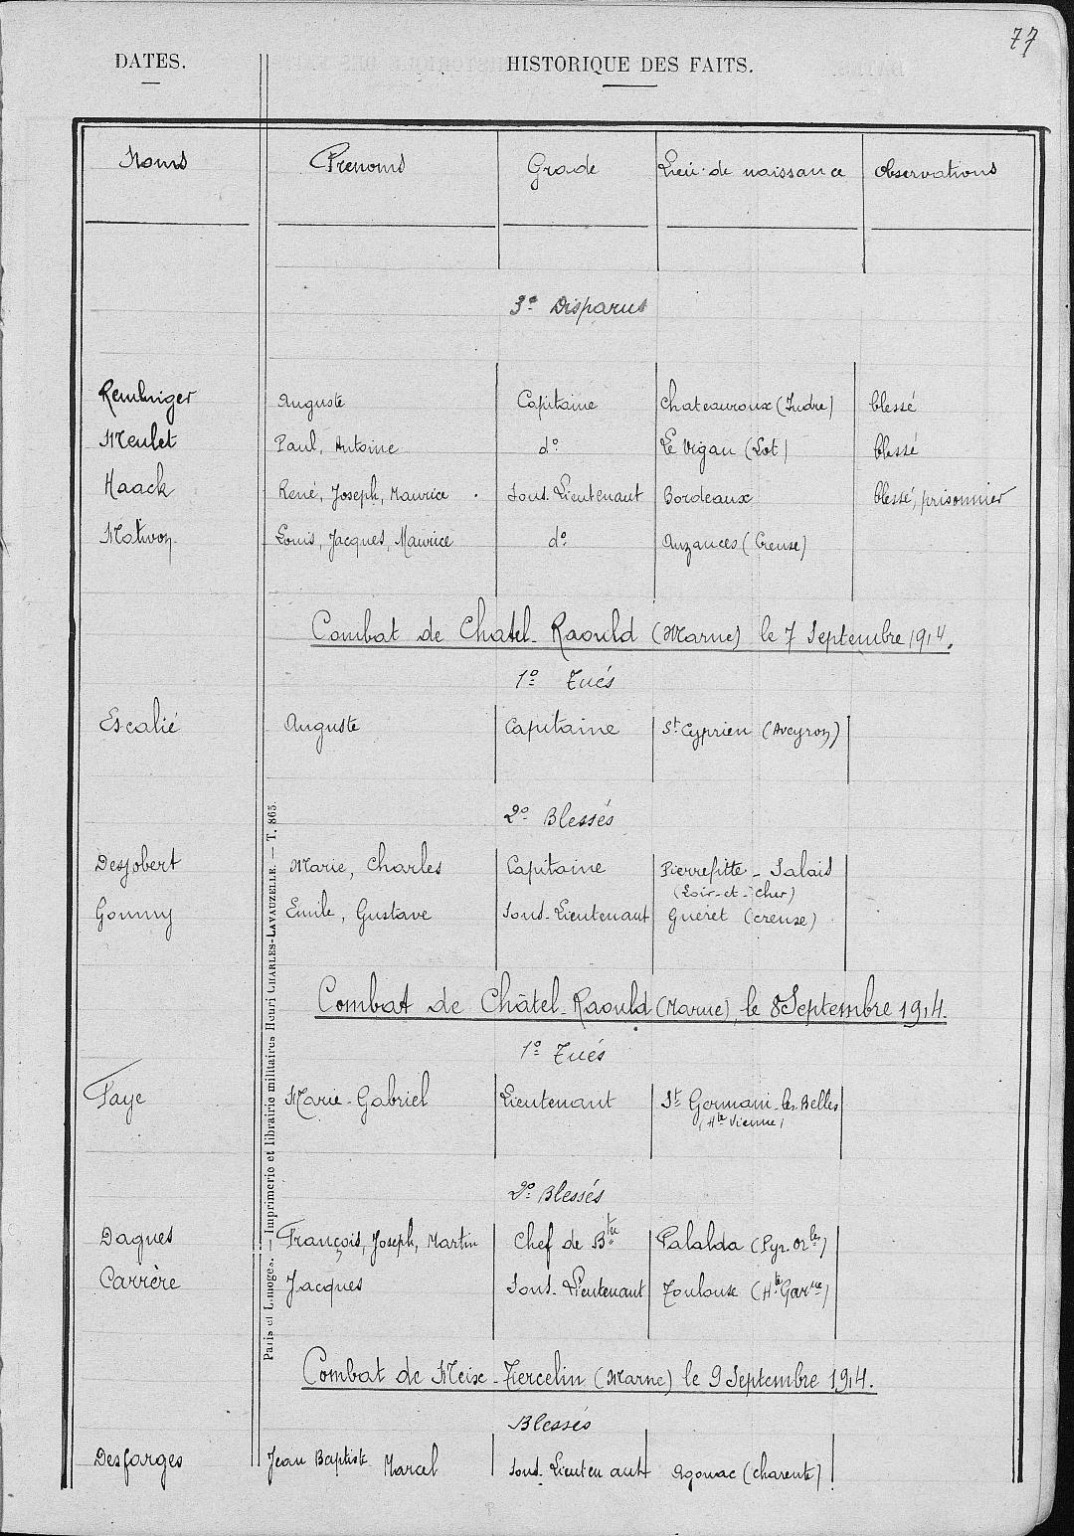 77
DATES. HISTORIQUE DES FAITS.
Noms Prénoms Grade Lieu de naissance Observations
3º Disparus
Auguste Capitaine Chateauroux (Indre) blessé
Meulet Paul, Antoine dº Le Vigan (Lot) blessé
Haack René, Joseph, Maurice Sous-Lieutenant Bordeaux blessé, prisonnier
Louis, Jacques, Maurice dº Auzances (Creuse)
Combat de Chatel-Raould (Marne) le 7 Septembre 1914.
1º Tués
Escalié Auguste Capitaine St Cyprien (Aveyron)
2º Blessés
Desjobert Marie, Charles Capitaine Pierrefitte-Salais
(Loir-et-Cher)
Goumy Emile, Gustave Sous-Lieutenant Guéret (Creuse)
Combat de Châtel-Raould (Marne), le 8 Septembre 1914.
1º Tués
Faye Marie-Gabriel Lieutenant St Germain-les-Belles
(Hte Vienne)
2º Blessés
Dagues François, Joseph, Martin Chef de Bton Palalda (Pyr. Orles)
Carrère Jacques Sous-Lieutenant Toulouse (Hte Garne)
Combat de Meix-Tiercelin (Marne) le 9 Septembre 1914.
Blessés
Desfarges Jean Baptiste Marcel Sous-Lieutenant Agonac (Charente)
Paris et Limoges. — Imprimerie et librairie militaires Henri CHARLES-LAVAUZELLE. — T. 865.